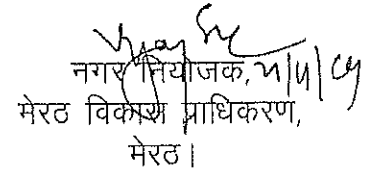 नगर नियोजक,
मेरठ विकास प्राधिकरण,
मेरठ।